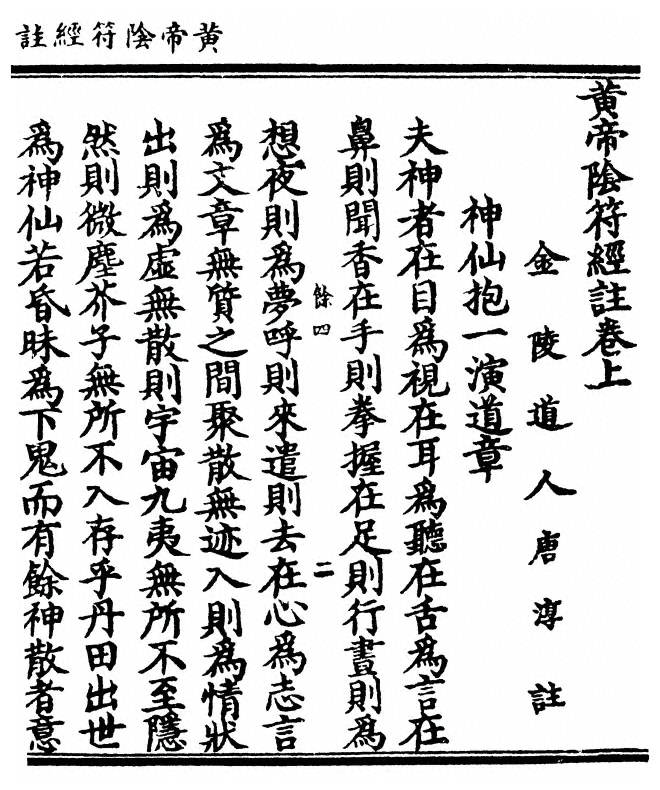 黃帝陰符經註
黃帝陰符經註卷上
金陵道人唐淳註
神仙抱一演道章
夫神者在目爲視在耳爲聽在舌爲言在
鼻則聞香在手則拳握在足則行晝則爲
餘四
二
想夜則爲夢呼則來遣則去在心爲志言
爲文章無質之間聚散無迹入則爲情狀
出則爲虛無散則宇宙九夷無所不至隱
然則微塵芥子無所不入存乎丹田出世
爲神仙若昏昧爲下鬼而有餘神散者意